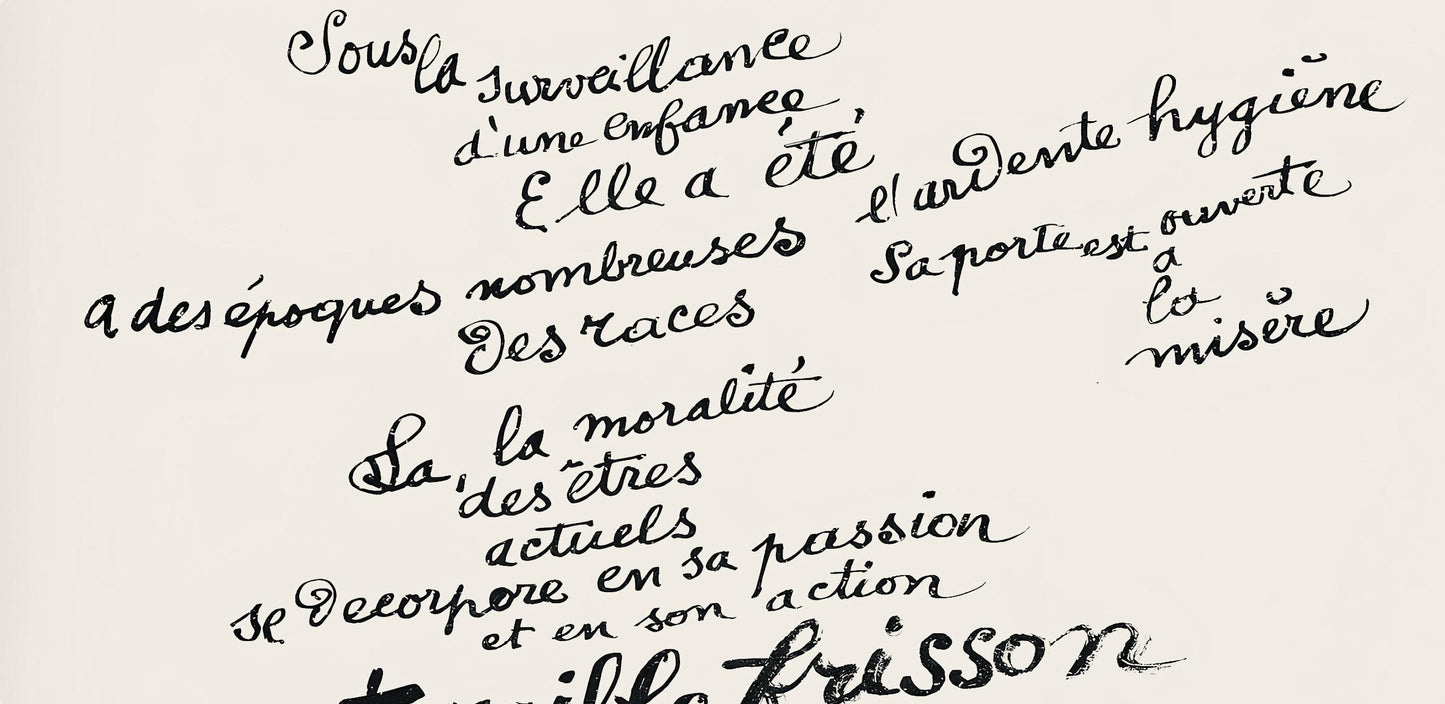 Sous la surveillance
d'une enfance
Elle a été,
l'ardente hygiène
a des époques nombreuses
Des races
Sa porte est ouverte
a
la
misère
Sa, la moralité
des êtres
actuels
se Decorpore en sa passion
et en son action
terrible frisson